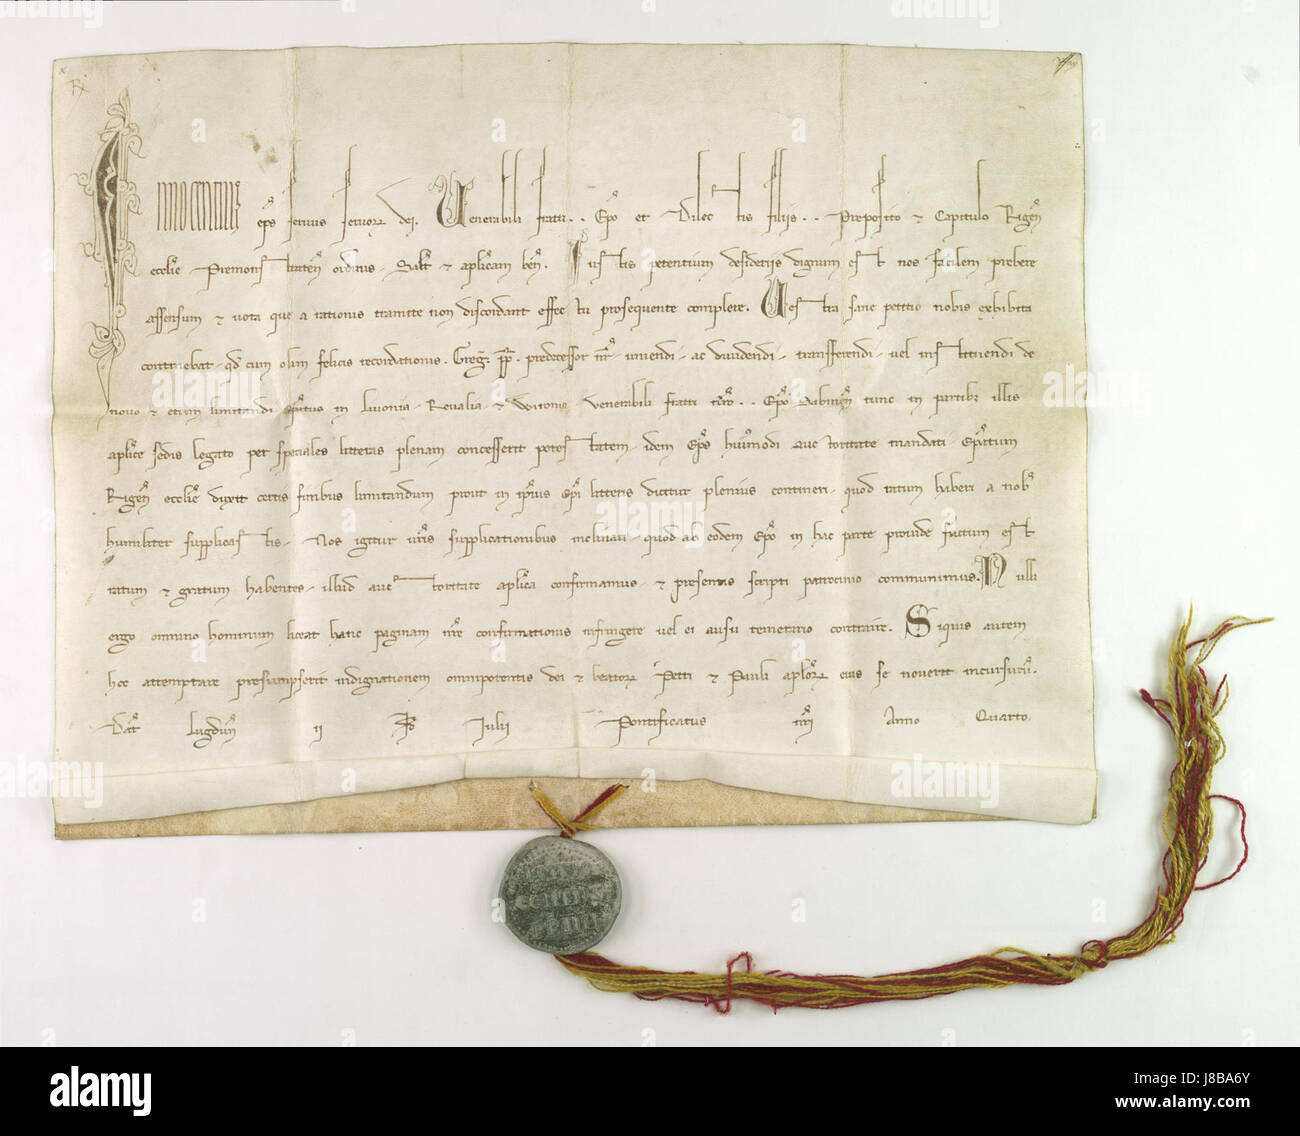 INNOCENTIUS ep̃s servus servoꝝ dei. Venerabili fratri . . Ep̃o et Dilectis filiis . . Preposito ⁊ Capitulo Rigeñ
ecclie Premonstrateñ ordinis. Salt̃ ⁊ aplicam beñ. Iustis petentium desideriis dignum est nos facilem prebere
assensum ⁊ vota que a rationis tramite non discordant effectu prosequente complere. Vestra sane petitio nobis exhibita
continebat. qđ cum olim felicis recordationis. Greg. pp̃. predecessor nr̃ uniendi. ac dividendi. transferendi. vel instituendi de
novo ⁊ etiam limitandi ep̃atus in Livonia. Revalia. ⁊ Wironia venerabili fratri nr̃o . . Ep̃o Sabineñ tunc in partibꝫ illis
aplice sedis legato per speciales litteras plenam concesserit potestatem. idem Ep̃s huiꝰmodi auctoritate mandati. Ep̃atum
Rigeñ ecclie duxit certis finibus limitandum prout in ip̃ius Ep̃i litteris dicitur plenius contineri. quod ratum haberi a nobꝭ
humiliter supplicastis. Nos igitur vr̃is supplicationibus inclinati. quod ab eodem Ep̃o in hac parte provide factum est
ratum ⁊ gratum habentes. illud auctoritate aplica confirmamus. ⁊ presentis scripti patrocinio communimus. Nulli
ergo omnino hominum liceat hanc paginam nr̃e confirmationis infringere vel ei ausu temerario contraire. Siquis autem
hoc attemptare presumpserit indignationem omnipotentis dei ⁊ beatoꝝ Petri ⁊ Pauli aploꝝ eius se noverit incursuꝝ.
Dat̃ Lugduñ ii Id̃ Julii Pontificatus nr̃i Anno Quarto.
alamy
Image ID: J8BA6Y
www.alamy.com